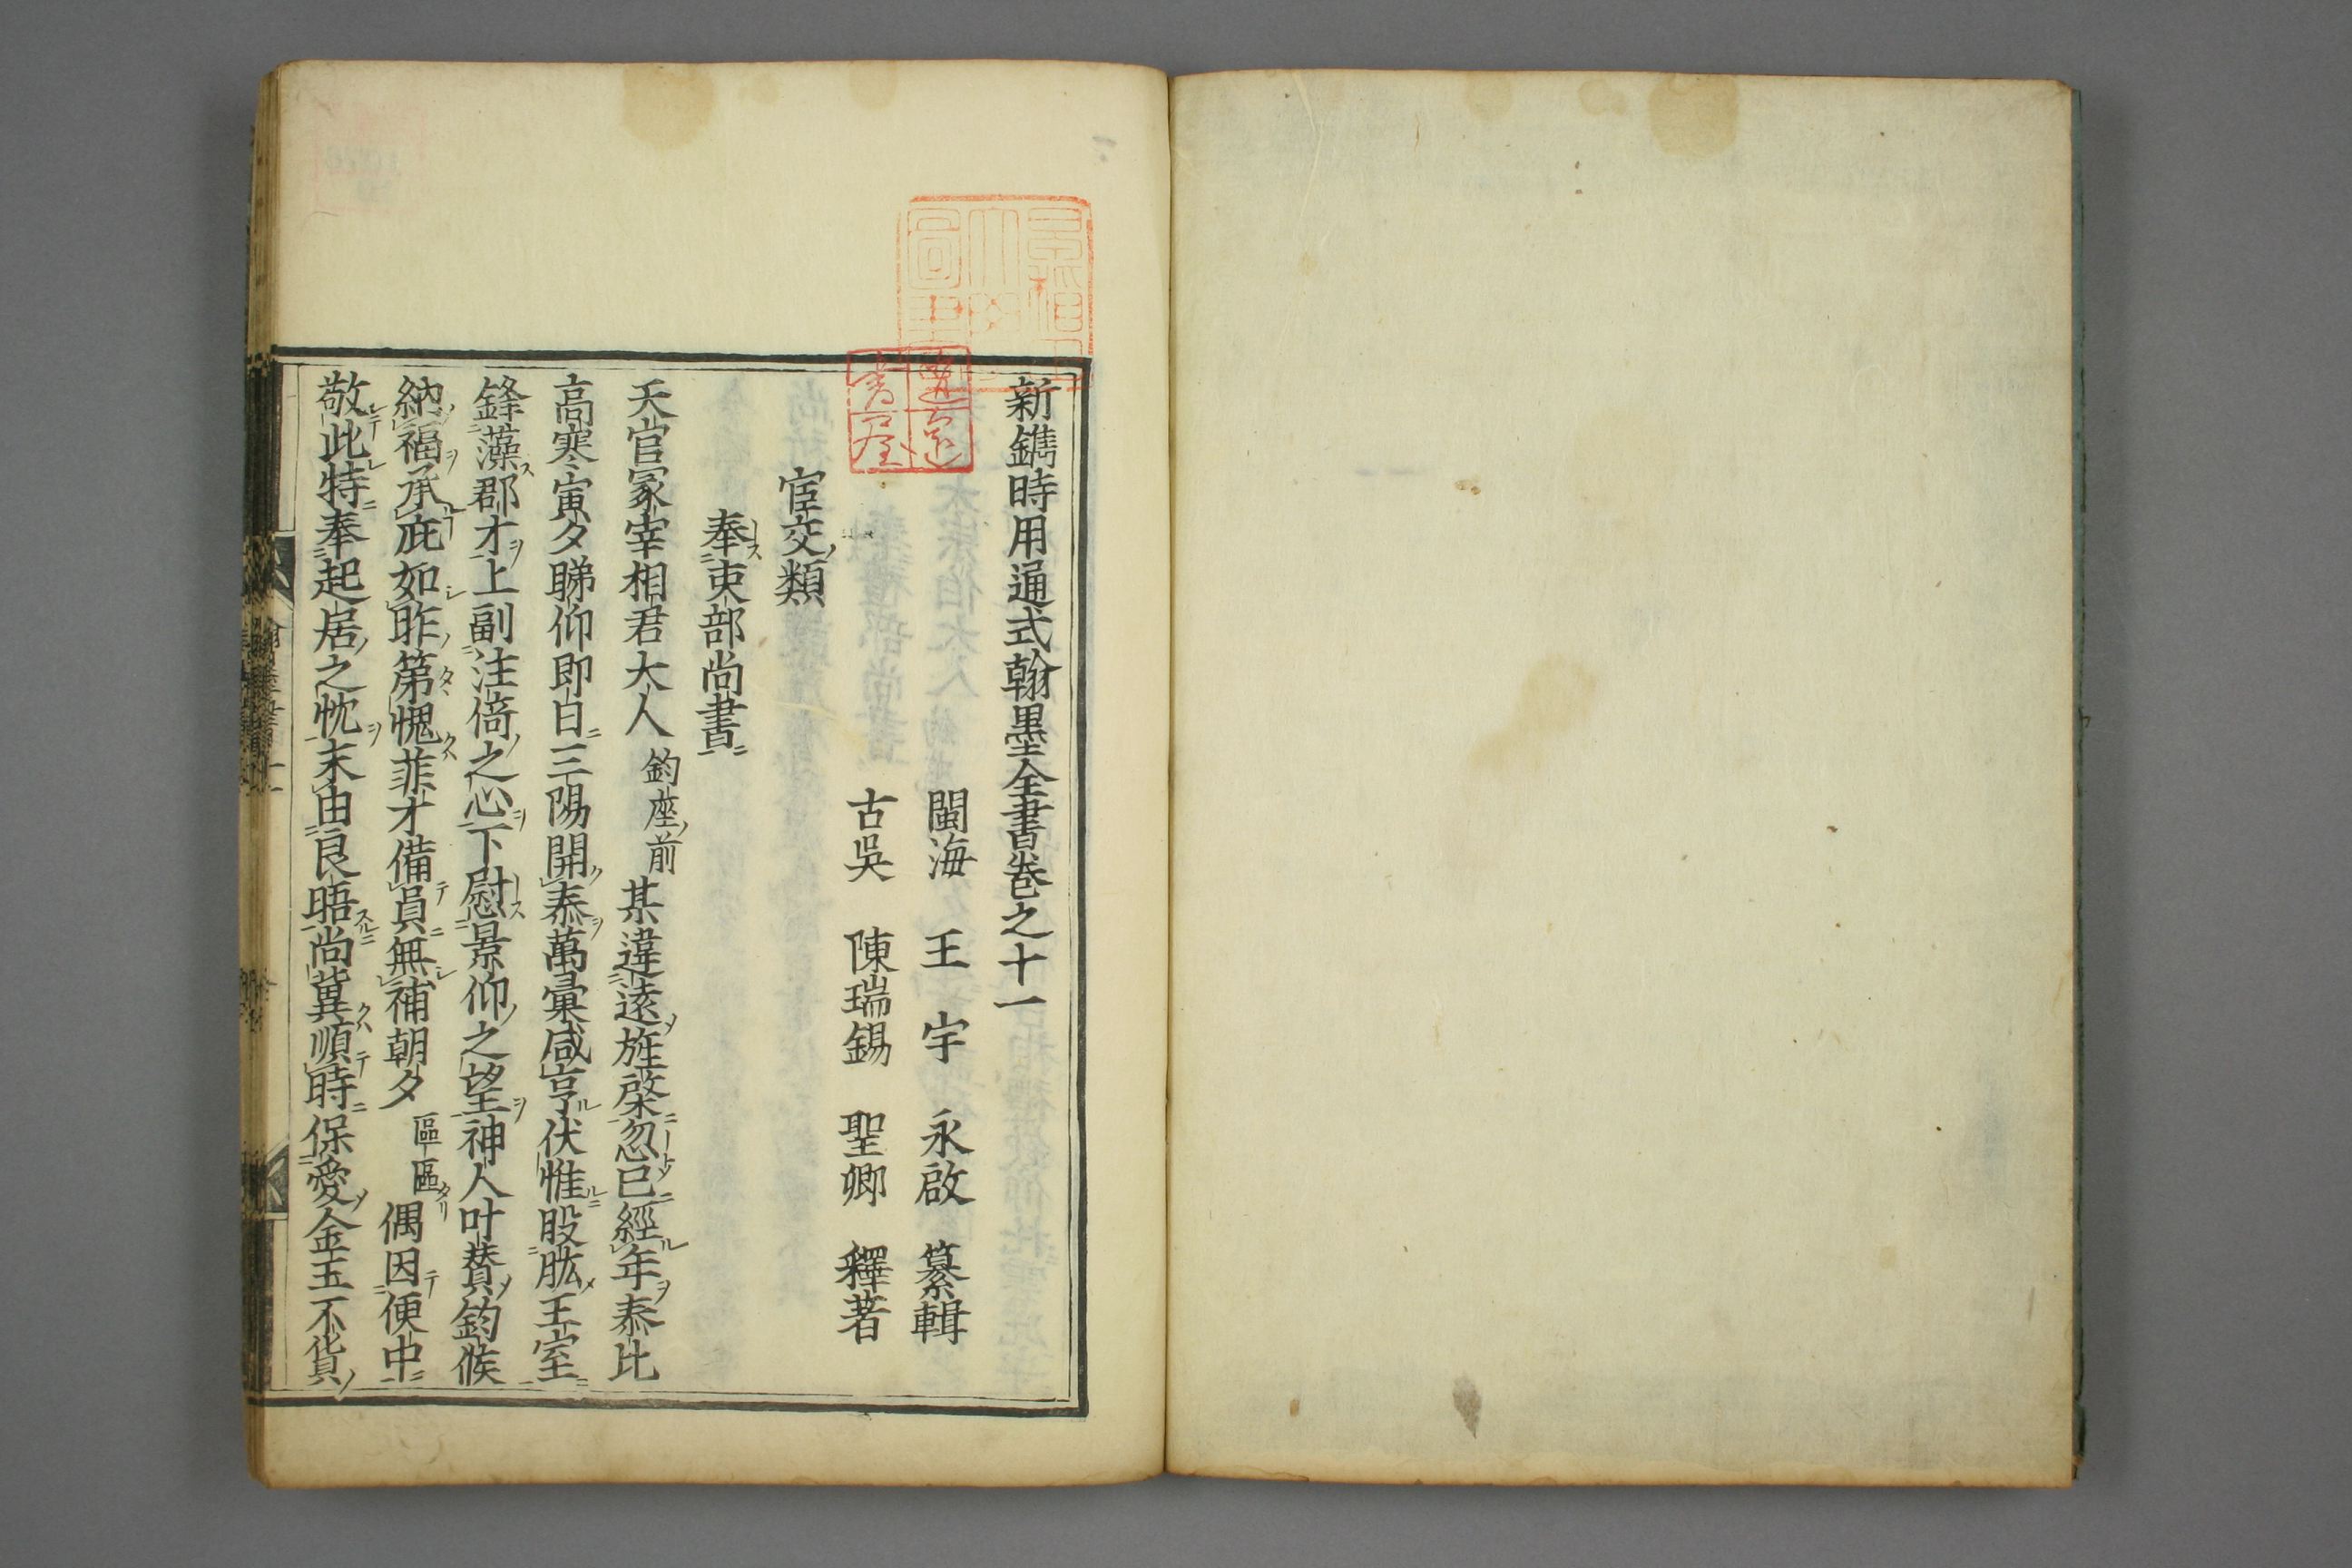 新鐫時用通式翰墨全書卷之十一
閩海　王　宇　永啟　纂輯
古吳　陳瑞錫　聖卿　釋著
宦交類
奉吏部尚書
天官冢宰相君大人鈞座前某違遠旌棨忽已經年泰比
高寒寅夕睇仰即日三陽開泰萬彙咸亨伏惟股肱王室
鋒藻郡才上副注倚之心下慰景仰之望神人叶賛鈞候
納福承庇如昨第愧菲才備員無補朝夕區區偶因便中
敬此特奉起居之忱末由良晤尚冀順時保愛金玉不貨